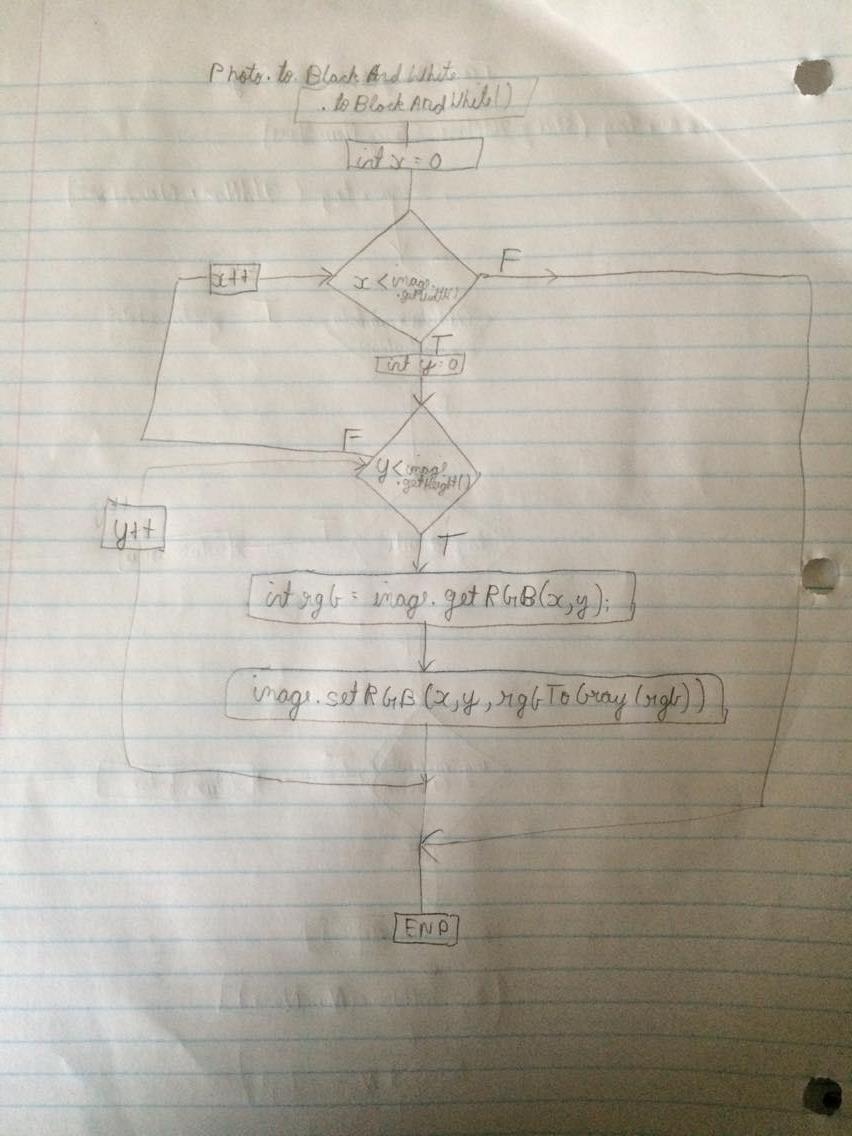 Photo.to.Black And White
.toBlackAndWhite()
int x = 0
x++
x < image.
.getWidth()
F
T
int y = 0
F
y < image.
.getHeight()
y++
T
int rgb = image.getRGB(x,y);
image.setRGB(x,y, rgbToGray(rgb))
END